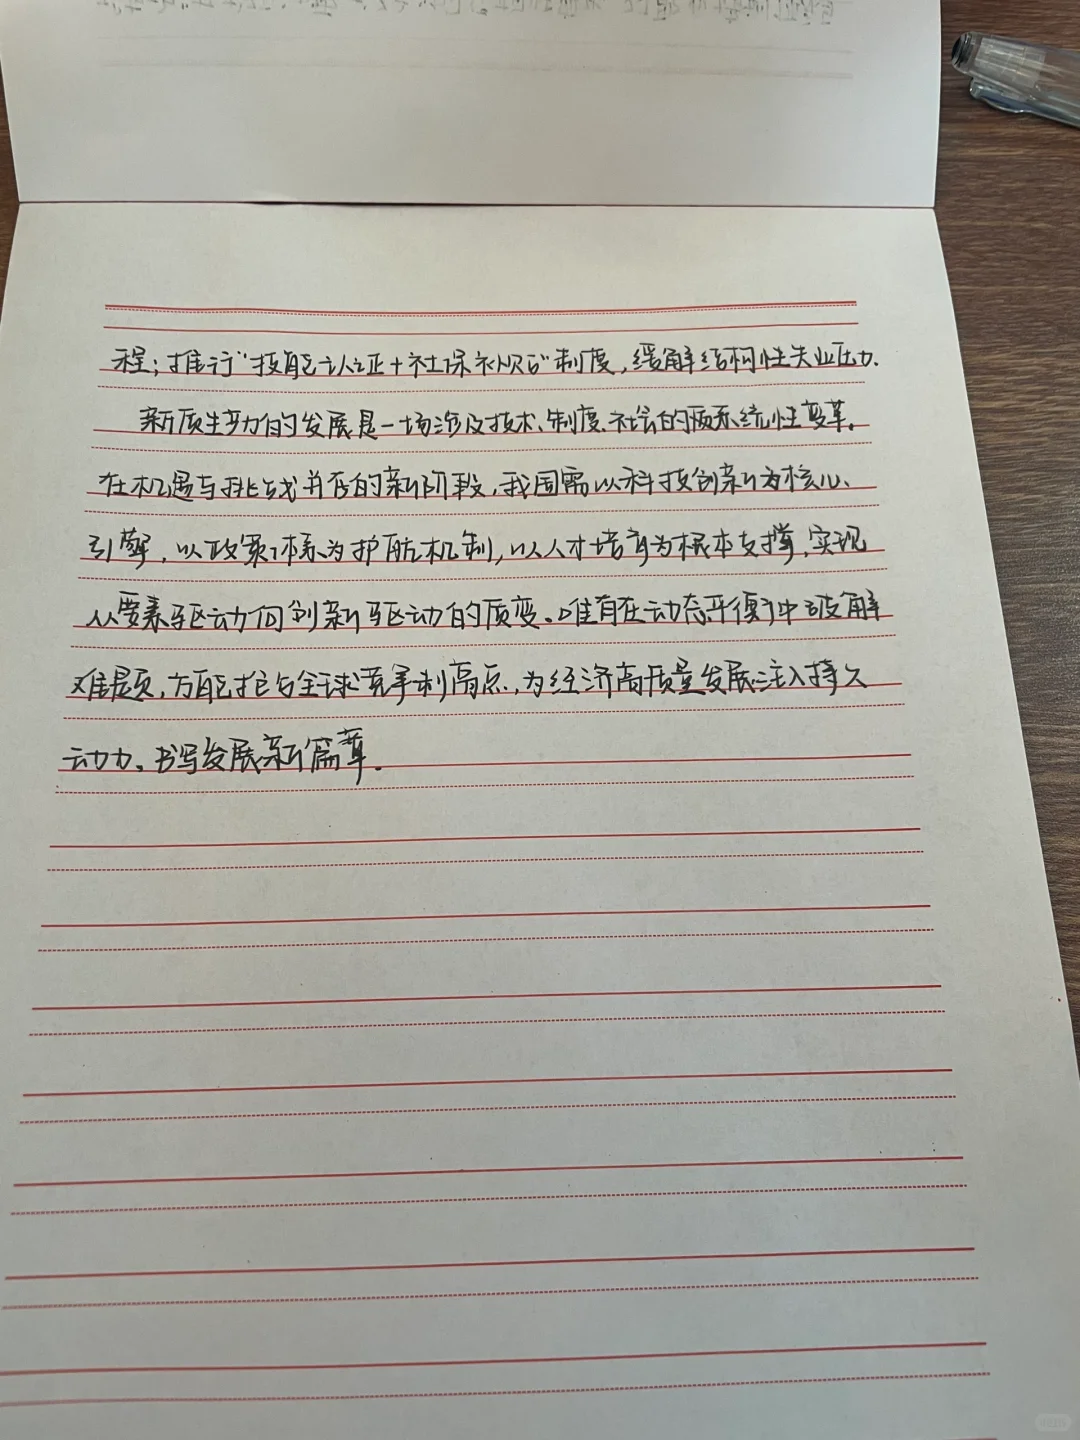 程；推行“技能认证+社保补贴”制度，缓解结构性失业压力.
新质生产力的发展是一场涉及技术、制度、社会的系统性变革。
在机遇与挑战并存的新阶段，我国需以科技创新为核心、
引擎，以政策体系为护航机制，以人才培育为根本支撑，实现
从要素驱动向创新驱动的质变。唯有在动态平衡中破解
难题，方能抢占全球竞争制高点，为经济高质量发展注入持久
动力。书写发展新篇章.